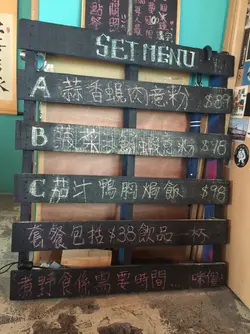 SET MENU
A 蒜香蝦肉意粉 $89
B 菠菜 蝦意粉 $78
C 茄汁鴨胸焗飯 $98
套餐包括$38飲品一杯
煮野食係需要時間...咪催!